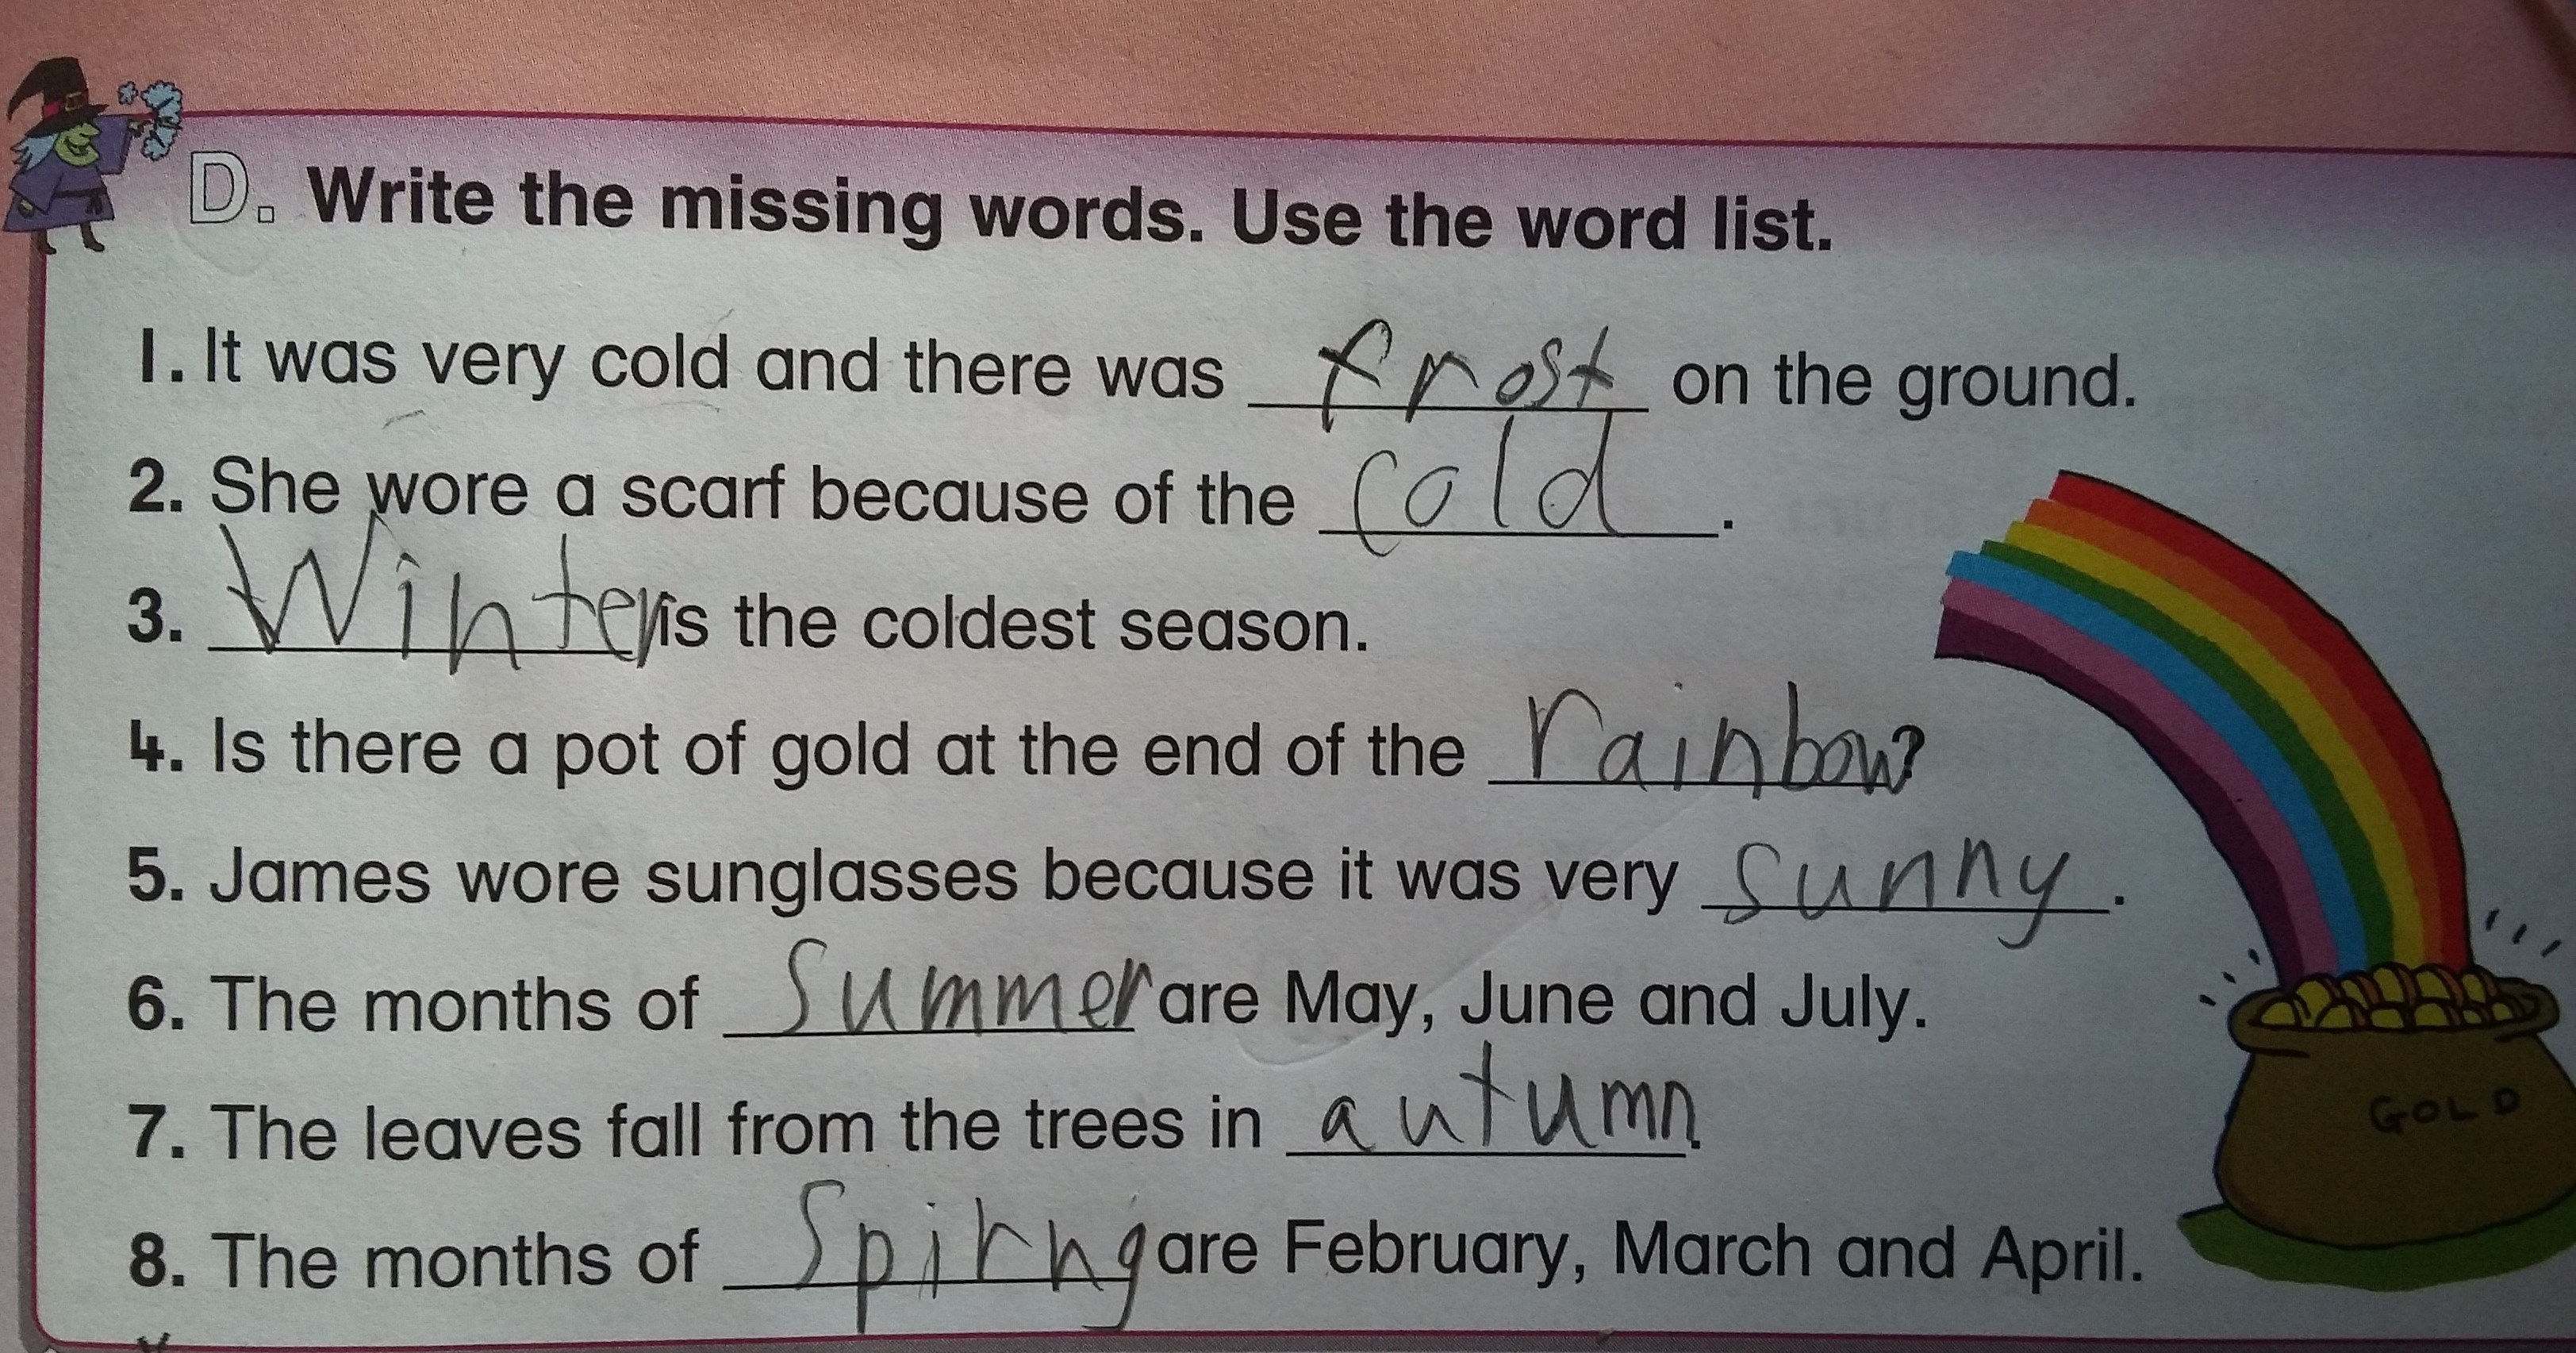 D. Write the missing words. Use the word list.
1. It was very cold and there was frost on the ground.
2. She wore a scarf because of the cold.
3. Winter is the coldest season.
4. Is there a pot of gold at the end of the rainbow?
5. James wore sunglasses because it was very sunny.
6. The months of Summer are May, June and July.
7. The leaves fall from the trees in autumn.
GOLD
8. The months of Spirng are February, March and April.